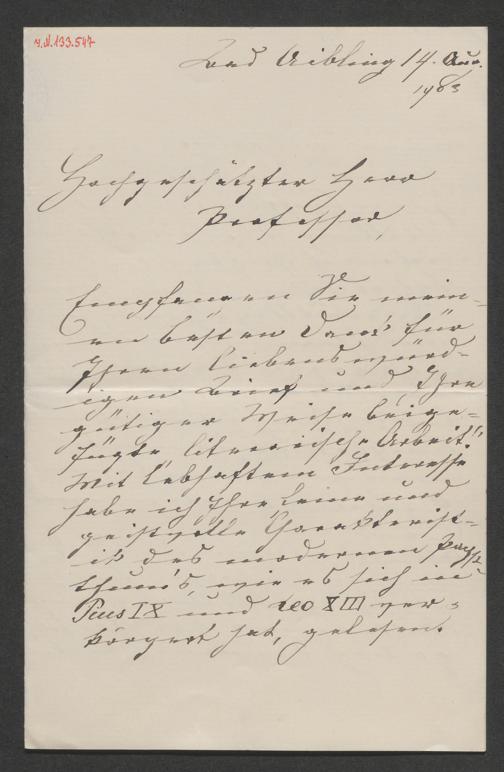 I.N. 133.547
Bad Aibling 14. Aug.
1903
Hochgeschätzter Herr
Professor,
Empfangen Sie mein-
en besten Dank für
Ihren liebenswürd-
igen Brief und Ihre
gütiger Weise beige-
fügte literarische Arbeit.
Mit lebhaftem Interesse
habe ich Ihre feine und
geistvolle Charakterist-
ik des modernen Papst-
thums, wie es sich in
Pius IX und Leo XIII ver-
körpert hat, gelesen.